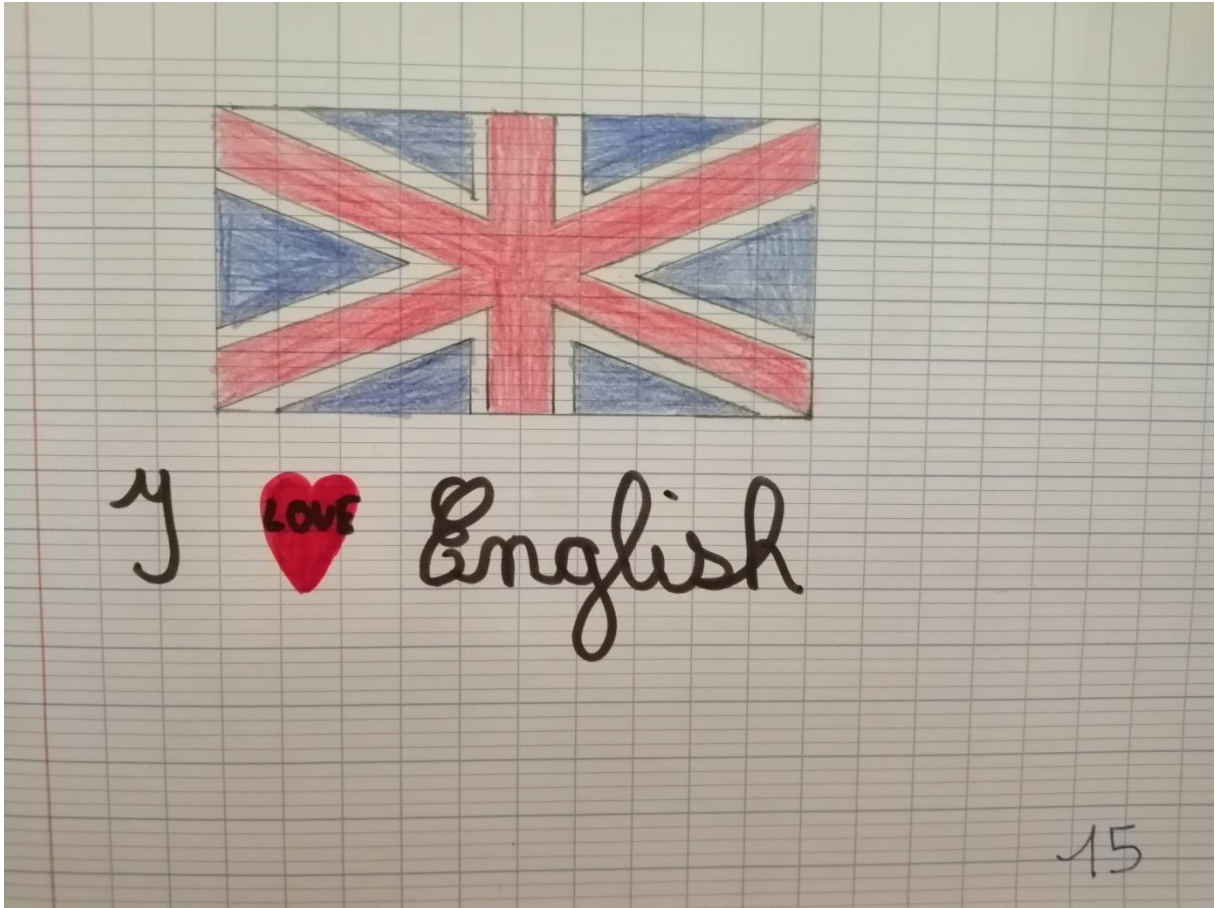 I LOVE English
15